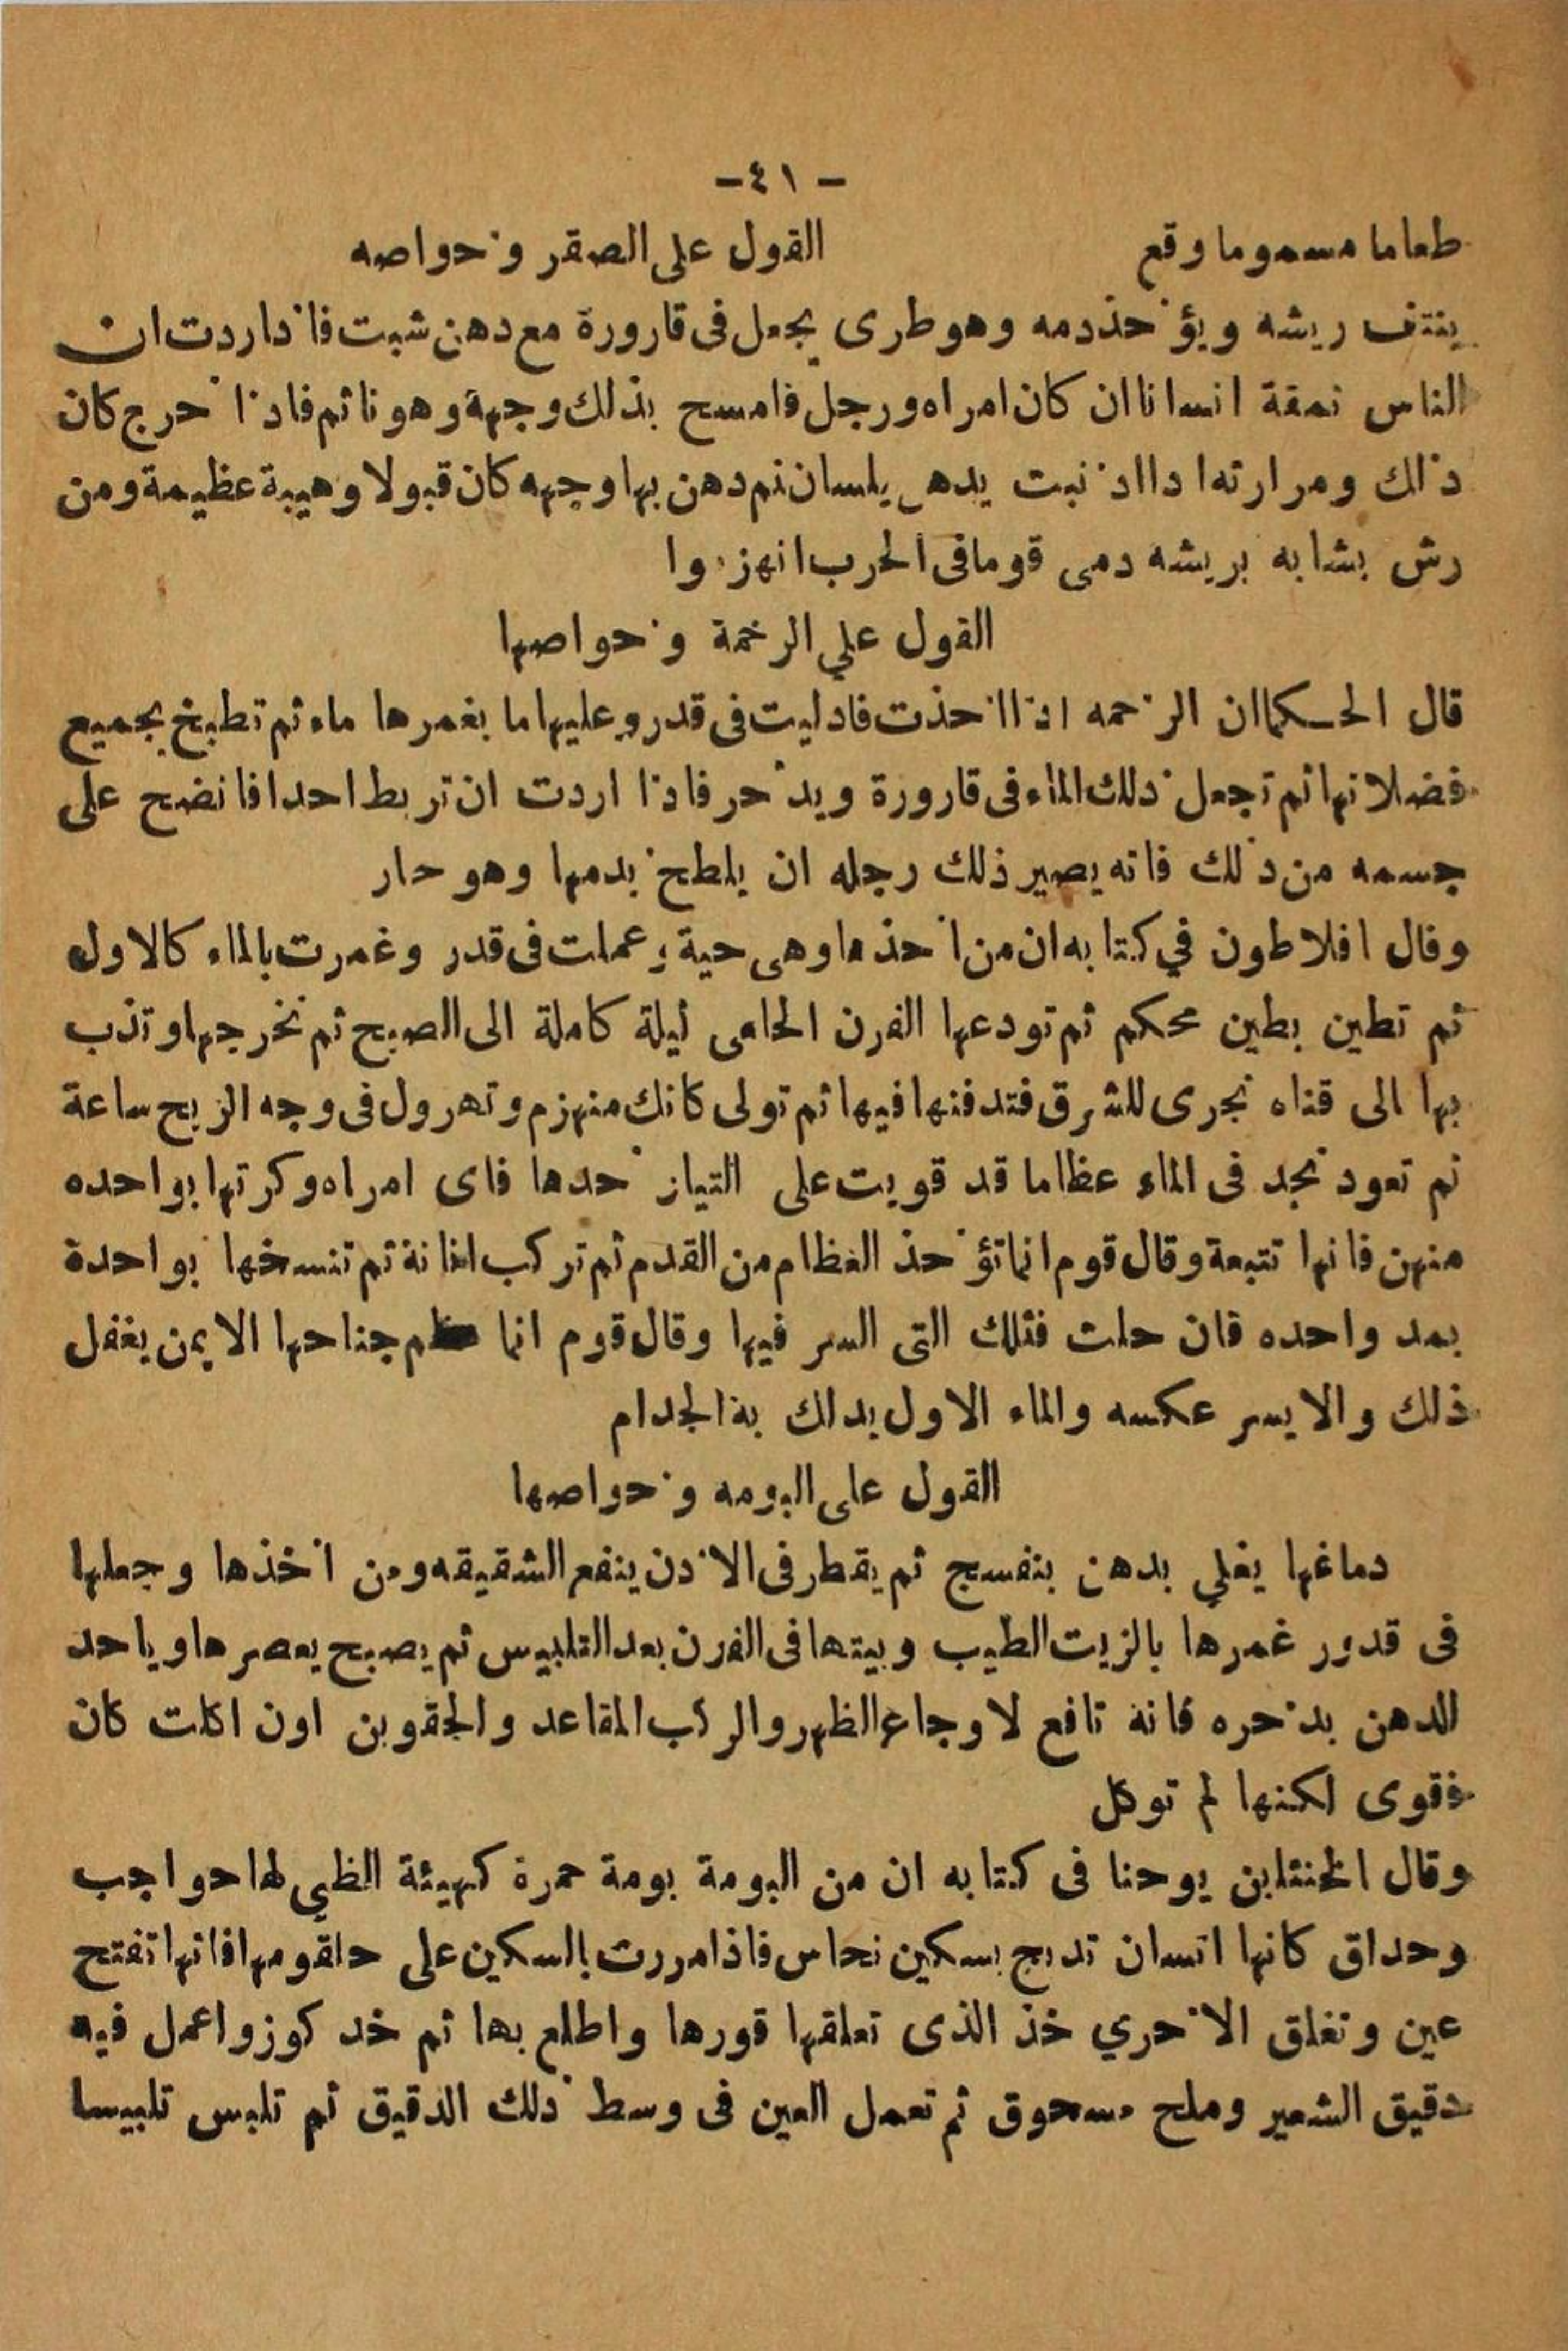 - ٤١ -
طعاما مسموما وقع القول على الصقر وخواصه
ينتف ريشه ويؤخذ دمه وهو طرى يجعل فى قارورة مع دهن شبت فاذا ردت ان
الناس نمقة انسانا ان كان امراه ورجل فامسح بذلك وجهة وهو نائم فاذا خرج كان
ذالك ومرارته ادا اذنبت يدهن يلسان ثم دهن بها وجهه كان قبولا وهيبة عظيمة ومن
رش بشابه بريشه دمى قوما فى الحرب انهزموا
القول علي الرخمة وخواصها
قال الحكما ان الرخمه اذا اخذت فادليت فى قدر وعليها ما بغمرها ماء ثم تطبخ بجميع
فضلانها ثم تجعل ذلك الماء فى قارورة ويدخر فاذا اردت ان تربط احدا فانضح على
جسمه من ذلك فانه يصير ذلك رجله ان يلطخ بدمها وهو حار
وقال افلاطون في كتابه ان من اخذها وهى حية وعملت فى قدر وغمرت بالماء كالاول
ثم تطين بطين محكم ثم تودعها الفرن الحامى ليلة كاملة الى الصبح ثم تخرجها وتذب
بها الى قناه تجرى للشرق فتدفنها فيها ثم تولى كانك منهزم وتهرول فى وجه الريح ساعة
ثم تعود تجد فى الماء عظاما قد قويت على التياز خدها فاى امراه وكرتها بواحده
منهن فانها تتبعة وقال قوم انما تؤخذ العظام من القدم ثم تركب انمانة ثم تنسخها بواحدة
بعد واحده فان حلت فتلك التى السر فيها وقال قوم انما عظم جناحها الايمن يغفل
ذلك والايسر عكسه والماء الاول بدلك بة الجدام
القول على البومه وخواصها
دماغها يغلي بدهن بنفسج ثم يقطر فى الاذن ينفع الشقيقه ومن اخذها وجعلها
فى قدور غمرها بالزيت الطيب وبيتها فى الفرن بعد التلبيس ثم يصبح يعصرها وياحد
الدهن بدخره فانة نافع لاوجاع الظهر والركب المقاعد والجقوبن اون اكلت كان
فقوى لكنها لم توكل
وقال ابن يوحنا فى كتابه ان من البومة بومة حمرة كهيئة الظبي لها حواجب
وحداق كانها انسان تدبح بسكين نحاس فاذا مررت بالسكين على حلقومها فانها تفتح
عين وتغلق الاخري خذ الذى تعلقها قورها واطلع بها ثم خد كوز واعمل فيه
دقيق الشعير وملح مسحوق ثم تعمل العين فى وسط ذلك الدقيق ثم تلبس تلبيسا